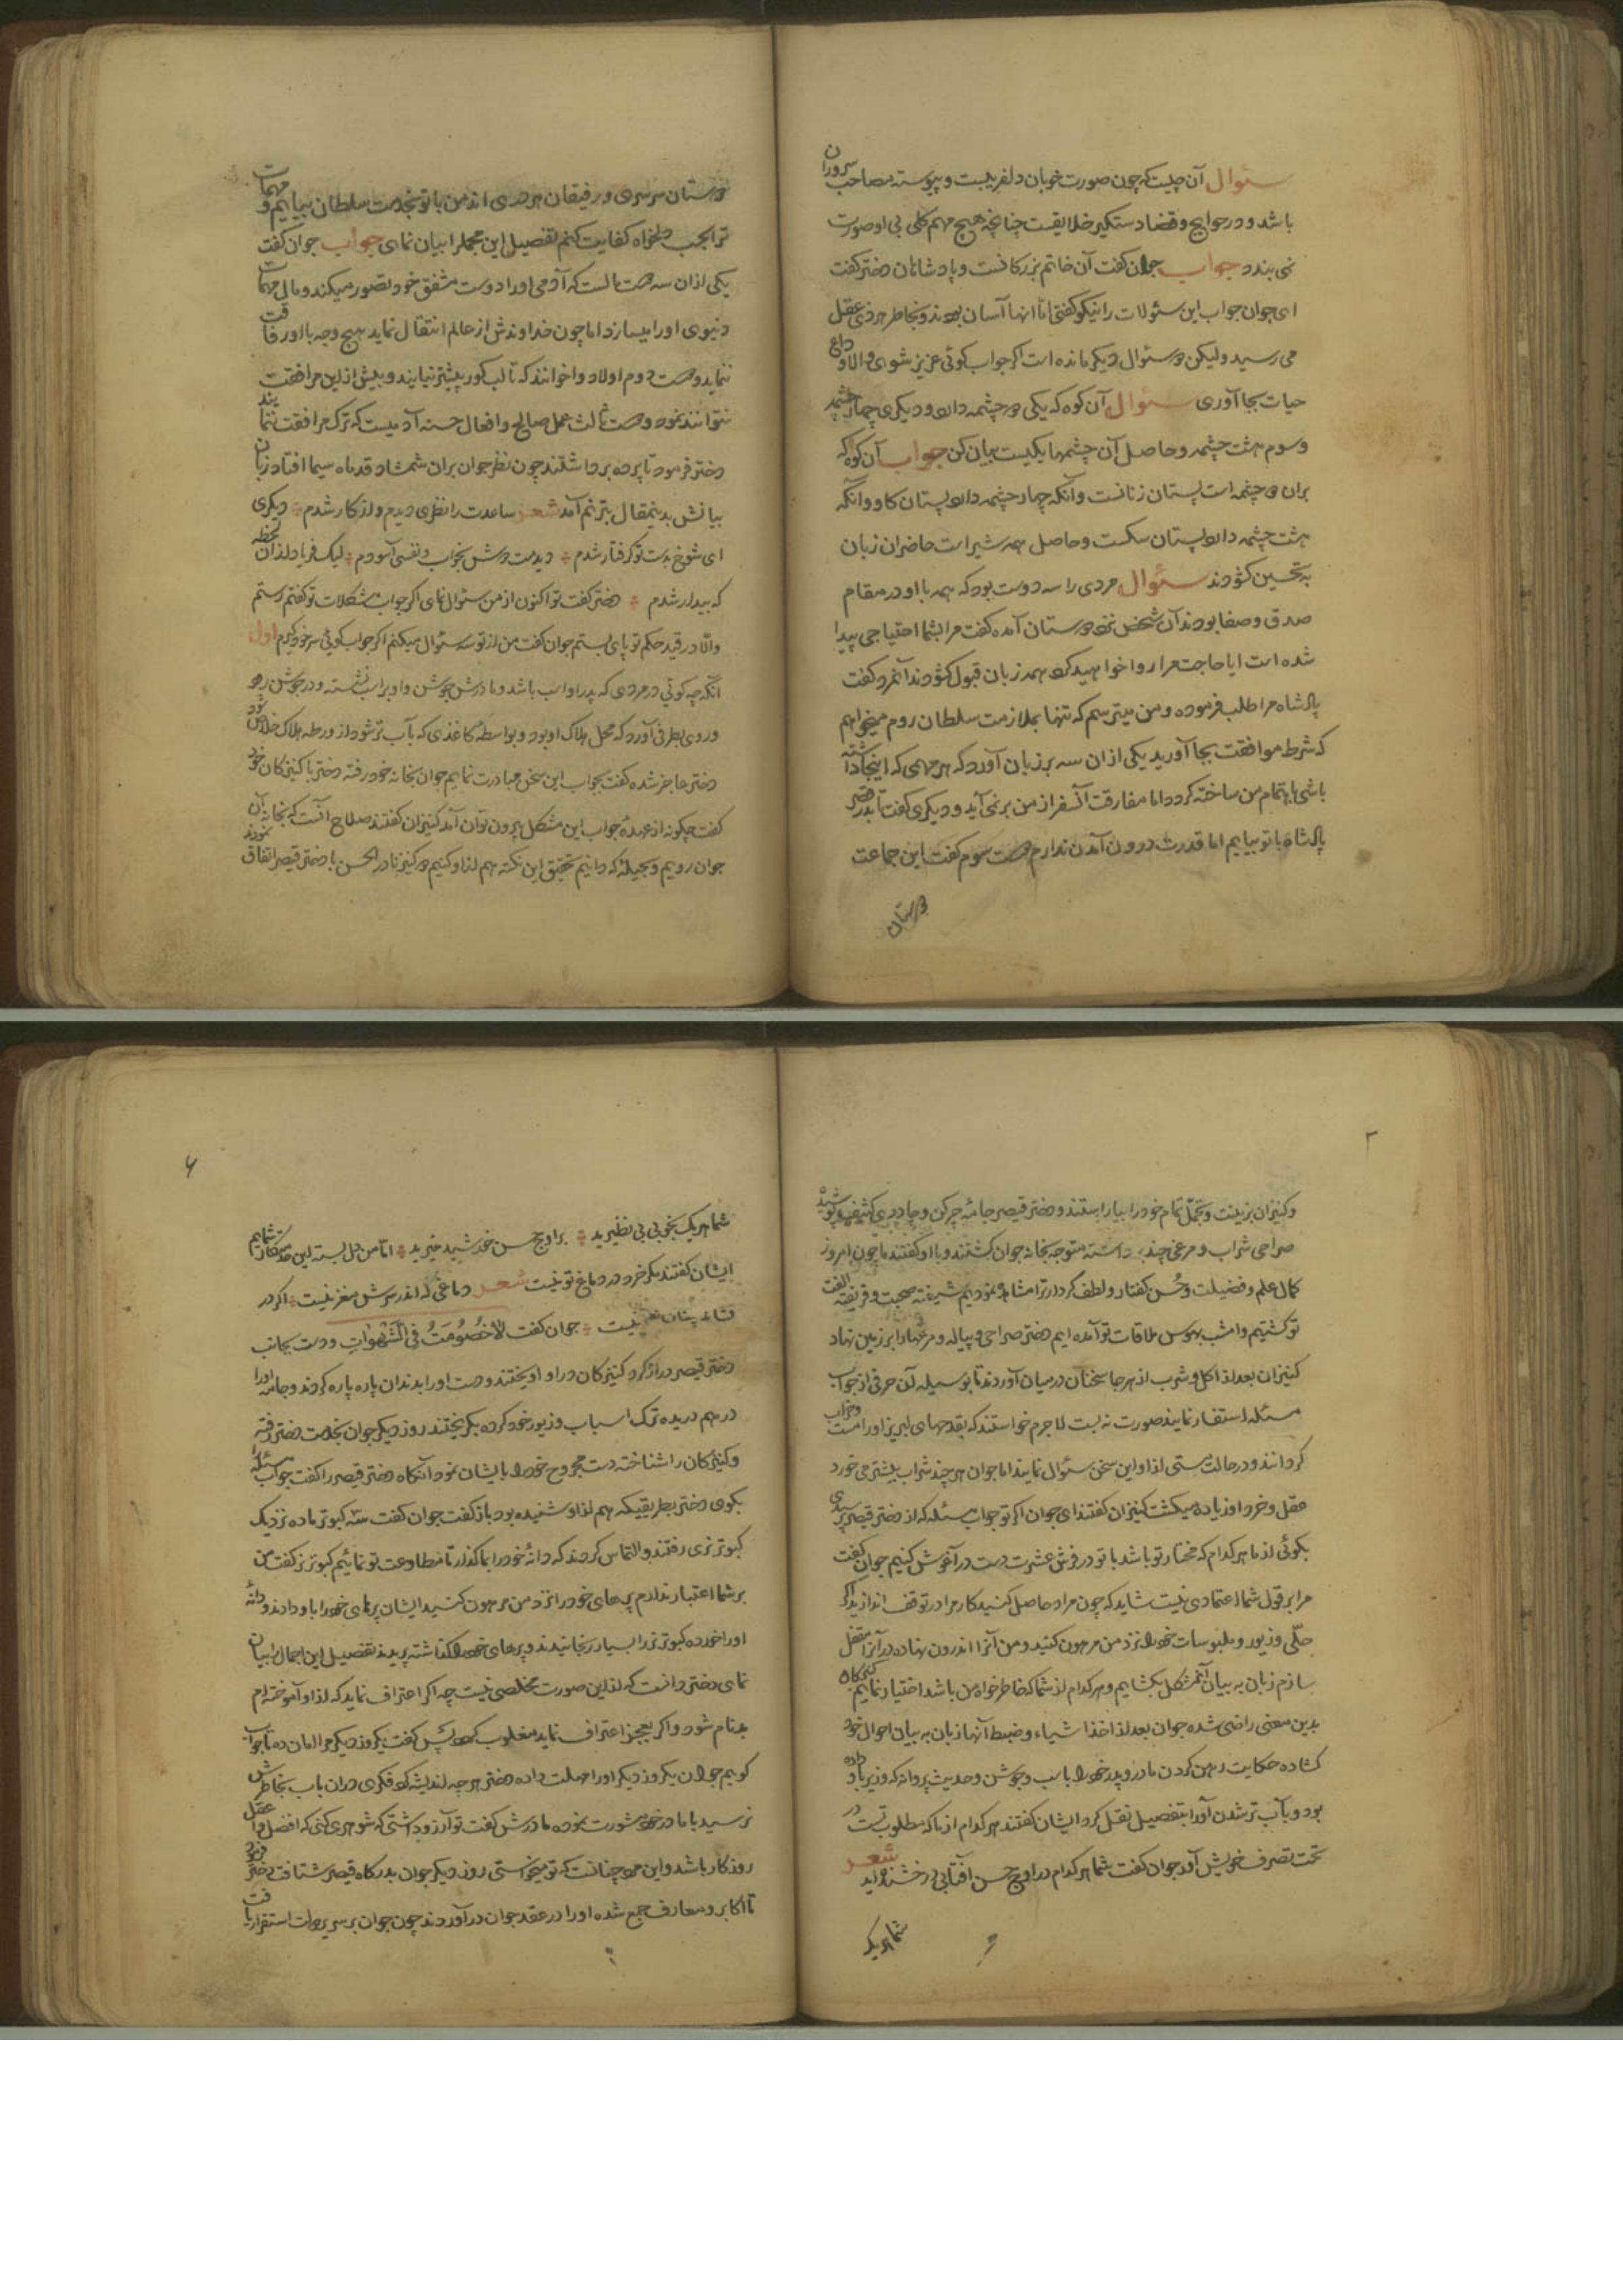 سئوال آن چیست که چون صورت خوبان دلفریبست و پیوسته مصاحب سروران
باشد و در حوایج و قضا دستگیر خلایقست چنانچه هیچ مهم کلی بی او صورت
نمی بندد جواب جوان کفت آن خاتم بزرکانست و پادشاهان دختر کفت
ای جوان جواب این سئولات را نیکو کفتی اما اینها آسان بودند و بخاطر هر ذی عقل
می رسید ولیکن دو سئوال دیکر مانده است اکر جواب کوئی عزیز شوی و الا وداع
حیات بجا آوری سئوال آن کوه که یکی دو چشمه دارد و دیکری چهار چشمه
و سوم هشت چشمه و حاصل آن چشمها یکیست بیان کن جواب آن کوه که
بران دو چشمه است پستان زنانست و آنکه چهار چشمه دارد پستان کاو و آنکه
هشت چشمه دارد پستان سکست و حاصل همه شیر است حاضران زبان
بتحسین کشودند سئوال مردی را سه دوست بود که همه با او در مقام
صدق و صفا بودند آن شخص نزد دوستان آمده کفت مرا بشما احتیاجی پیدا
شده است ایا حاجت مرا روا خواهید کرد همه زبان قبول کشودند آنمرد کفت
پادشاه مرا طلب فرموده و من میترسم که تنها بملازمت سلطان روم میخواهم
که شرط موافقت بجا آورید یکی ازان سه بر زبان آورد که هر مهمی که اینجا داشته
باشی باهتمام من ساخته کردد اما مفارقت آنسفر از من بر نمی آید و دیکری کفت تا بدر قصر
پادشاه با تو بیایم اما قدرت درون آمدن ندارم دوست سوم کفت این جماعت
دوستان
دوستان سرسری و رفیقان هر دری اند من با تو بخدمت سلطان بیایم و مهمات
ترا بحسب دلخواه کفایت کنم تفصیل این مجمل را بیان نمای جواب جوان کفت
یکی ازان سه دوست مالست که آدمی او را دوست مشفق خود تصور میکند و مال مهمات
دنیوی او را میسازد اما چون خداوندش از عالم انتقال نماید بهیچ وجه با او رفاقت
ننماید و دوست دوم اولاد و اخوانند که تا لب کور بیشتر نیایند و بیش ازین مرافقت
نتوانند نمود و دوست ثالث عمل صالح و افعال حسنه آدمیست که ترک مرافقت ننمایند
دختر فرمود تا پرده برداشتند چون نظر جوان بران شمشاد قد ماه سیما افتاد زبان
بیانش بدینمقال بترنم آمد شعر ساعدت را نظری دیدم و از کار شدم دیکری
ای شوخ بدست تو کرفتار شدم دیدمت دوش بخواب و نفسی آسودم لیک فریاد ازان لحظه
که بیدار شدم دختر کفت تو اکنون از من سئوال نمای اکر جواب مشکلات تو کفتم رستم
و الا در قید حکم تو پای بستم جوان کفت من از تو سه سئوال میکنم اکر جواب کوئی سر خود کیرم اول
آنکه چه کوئی در مردی که پدر او اسب باشد و مادرش جوشن و او بر اسب نشسته و در جوشن رود
و روی بطرفی آورد که محل هلاک او بود و بواسطه کاغذی که بآب تر شود از ورطه هلاک خلاص شود
دختر عاجز شده کفت بجواب این سخن مبادرت نمایم جوان بخانه خود رفته دختر با کنیزکان خود
کفت چکونه از عهده جواب این مشکل بیرون توان آمد کنیزان کفتند صلاح آنست که بخانه آن
جوان رویم و بحیله که دانیم تحقیق این نکته هم ازاو کنیم دو کنیز نادر الحسن با دختر قیصر اتفاق نمودند
و کنیزان بزینت و تجمل تمام خود را بیاراستند و دختر قیصر جامه چرکن و چادری کثیف پوشیده
صراحی شراب و مرغی چند برداشته متوجه بخانه جوان کشتند و با او کفتند ما چون امروز
کمال علم و فضیلت و حسن کفتار و لطف کردار ترا مشاهده نمودیم شیفته صحبت و فریفته الفت
تو کشتیم و امشب بهوس ملاقات تو آمده ایم دختر صراحی و پیاله و مرغها را بر زمین نهاد
کنیزان بعد از اکل و شرب از هر جا سخنان درمیان آوردند تا بوسیله آن حرفی از جواب
مسئله استفسار نمایند صورت نه بست لاجرم خواستند که بقدحهای لبریز او را مست و خراب
کردانند و در حالت مستی ازاو این سخن سئوال نمایند اما جوان هر چند شراب بیشتر می خورد
عقل و خرد او زیاده میکشت کنیزان کفتند ای جوان اکر تو جواب مسئله که از دختر قیصر پرسیدی
بکوئی از ما هر کدام که مختار تو باشد با تو در فرش عشرت دست در آغوش کنیم جوان کفت
مرا بر قول شما اعتمادی نیست شاید که چون مراد حاصل کنید کار مرا در توقف اندازید اکر
حلی و زیور و ملبوسات خود را نزد من مرهون کنید و من آنرا اندرون نهاده در آنرا مقفل
سازم زبان به بیان آنمشکل بکشایم و هر کدام از شما که خاطر خواه من باشد اختیار نمایم کنیزکان
بدین معنی راضی شده جوان بعد از اخذ اشیاء و ضبط آنها زبان به بیان احوال خود
کشاده حکایت رهن کردن مادر و پدر خود را باسب و جوشن و حدیث پروانه که وزیر باو داده
بود و بآب تر شدن آنرا بتفصیل نقل کرد ایشان کفتند هر کدام از ما که مطلوب تست در
تحت تصرف خویش آور جوان کفت شما هر کدام در اوج حسن آفتابی درخشنده اید شعر
شما هر یک
شما هر یک بخوبی بی نظیرید بر اوج حسن خورشید منیرید اما من دل بسته این خدمتکار شمایم
ایشان کفتند مکر خرد در دماغ تو نیست شعر دماغی که اندر سرش مغز نیست اکر در
نیست جوان کفت لا خصومت فی الشهوات و دست بجانب
دختر قیصر دراز کرد کنیزکان در او آویختند و دست او را بدندان پاره پاره کردند و جامه او را
درهم دریده ترک اسباب و زیور خود کرده بکریختند روز دیکر جوان بخدمت دختر رفته
و کنیزکان را شناخته دست مجروح خود را بایشان نمود آنکاه دختر قیصر را کفت جواب مسئله را
بکوی دختر بطریقیکه هم ازاو شنیده بود باز کفت جوان کفت سه کبوتر ماده نزدیک
کبوتر نری رفتند و التماس کردند که دانه خود را بما کذار تا مطاوعت تو نمائیم کبوتر نر کفت من
بر شما اعتبار ندارم پرهای خود را نزد من مرهون کنید ایشان پرهای خود را باو دادند و دانه
او را خورده کبوتر نر را بسیار رنجانیدند و پرهای خود را کذاشته پریدند تفصیل این اجمال را بیان
نمای دختر دانست که ازین صورت مخلصی نیست چه اکر اعتراف نماید که ازاو آموخته ام
بدنام شود و اکر بعجز اعتراف نماید مغلوب کردد پس کفت یکروز دیکر مرا امان ده تا جواب
کویم جوان یکروز دیکر او را مهلت داده دختر هر چه اندیشه کرد فکری دران باب بخاطرش
نرسید با مادر خود مشورت نموده مادرش کفت تو آرزو داشتی که شوهری کنی که افضل و اعقل
روزکار باشد و این مرد چنانست که تو میخواستی روز دیکر جوان بدرکاه قیصر شتافت دختر فرمود
تا اکابر و معارف جمع شده او را در عقد جوان درآوردند چون جوان بر سریر دولت استقرار یافت